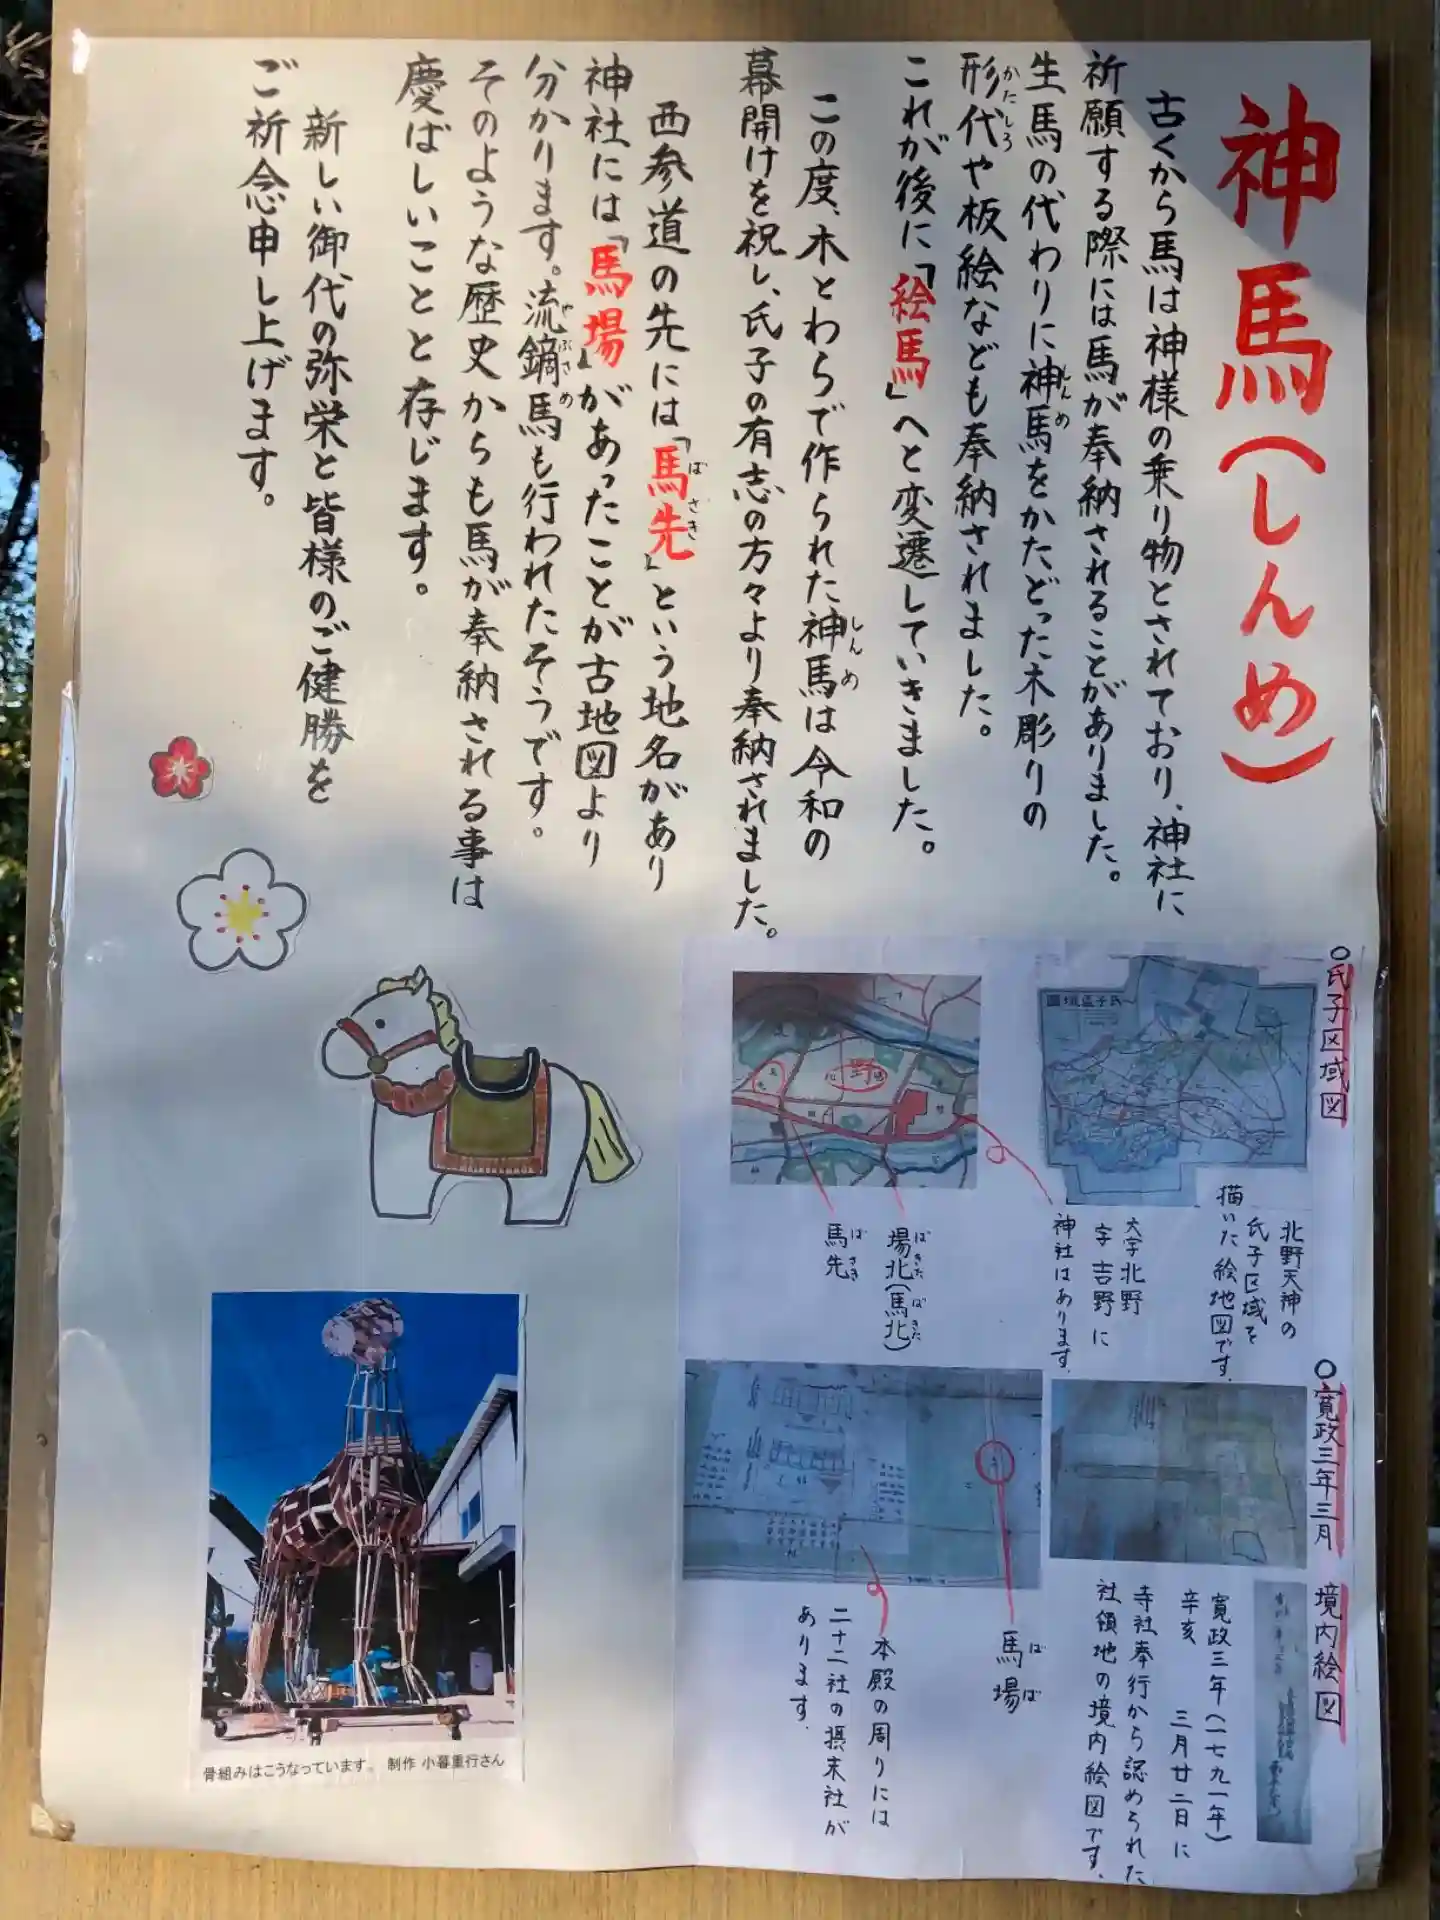 神馬(しんめ)
古くから馬は神様の乗り物とされており、神社に
祈願する際には馬が奉納されることがありました。
生馬の代わりに神馬をかたどった木彫りの
しんめ
形代や板絵なども奉納されました。
かたしろ
これが後に「絵馬」へと変遷していきました。
この度、木とわらで作られた神馬は令和の
しんめ
幕開けを祝し、氏子の有志の方々より奉納されました。
西参道の先には「馬先」という地名があり
ばさき
神社には「馬場」があったことが古地図より
分かります。流鏑馬も行われたそうです。
やぶさめ
そのような歴史からも馬が奉納される事は
慶ばしいことと存じます。
新しい御代の弥栄と皆様のご健勝を
ご祈念申し上げます。
○氏子区域図
氏子區域圖
北野天神の
氏子区域を
描いた絵地図です。
大字北野
字吉野に
神社はあります。
場北(馬北)
ばきた
ばきた
馬先
ばさき
野
○寛政三年三月 境内絵図
寛政三年(一七九一年)
辛亥 三月廿二日に
寺社奉行から認められた
社領地の境内絵図です。
馬場
ばば
本殿の周りには
二十二社の摂末社が
あります。
骨組みはこうなっています。 制作 小暮重行さん